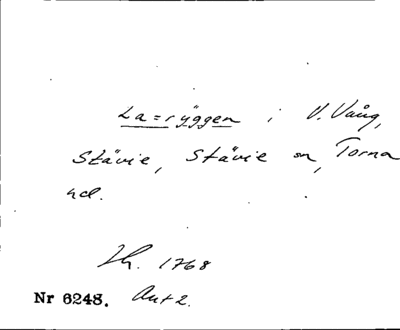 La=ryggen i V. Vång,
Stävie, Stävie sn, Torna
hd.
Jh. 1768
Nr 6248. Ant 2.